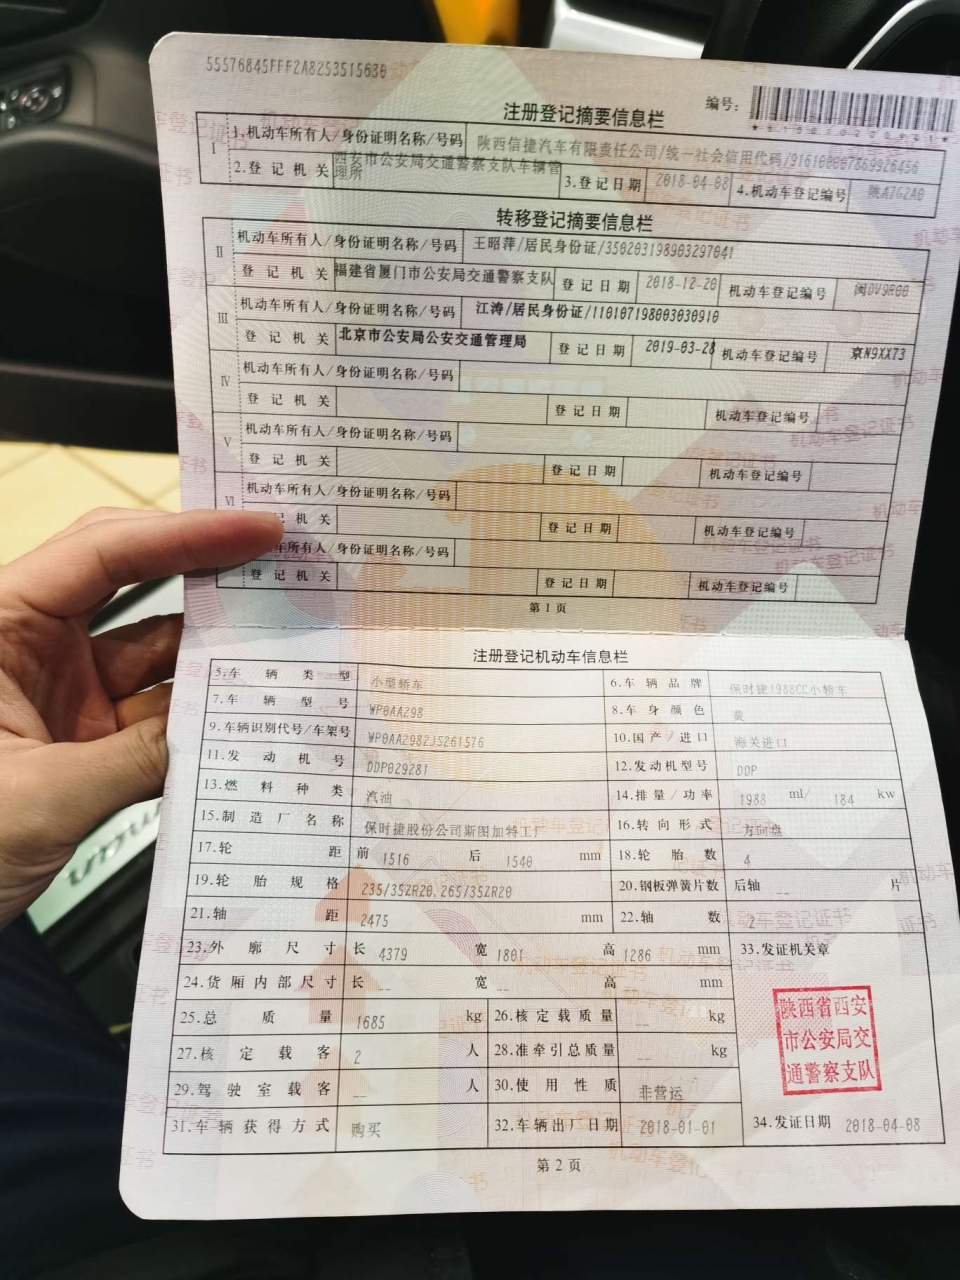 55576845FFF2A8253515630
编号：
注册登记摘要信息栏
I 1.机动车所有人/身份证明名称/号码 陕西信捷汽车有限责任公司/统一社会信用代码/
2.登记机关 西安市公安局交通警察支队车辆管理所 3.登记日期 2018-04-08 4.机动车登记编号 陕A7G2A0
转移登记摘要信息栏
II 机动车所有人/身份证明名称/号码 王昭萍/居民身份证/350203198903297041
登记机关 福建省厦门市公安局交通警察支队 登记日期 2018-12-20 机动车登记编号 闽DV9R00
III 机动车所有人/身份证明名称/号码 江涛/居民身份证/110107198003030910
登记机关 北京市公安局公安交通管理局 登记日期 2019-03-28 机动车登记编号 京N9XX73
IV 机动车所有人/身份证明名称/号码
登记机关 登记日期 机动车登记编号
V 机动车所有人/身份证明名称/号码
登记机关 登记日期 机动车登记编号
VI 机动车所有人/身份证明名称/号码
记机关 登记日期 机动车登记编号
车所有人/身份证明名称/号码
登记机关 登记日期 机动车登记编号
第1页
注册登记机动车信息栏
5.车辆类型 小型轿车 6.车辆品牌 保时捷1988CC小轿车
7.车辆型号 WP0AA298 8.车身颜色 黄
9.车辆识别代号/车架号 WP0AA2982JS261576 10.国产/进口 海关进口
11.发动机号 DDP029281 12.发动机型号 DDP
13.燃料种类 汽油 14.排量/功率 1988 ml/ 184 kw
15.制造厂名称 保时捷股份公司斯图加特工厂 16.转向形式 方向盘
17.轮距 前 1516 后 1540 mm 18.轮胎数 4
19.轮胎规格 235/35ZR20,265/35ZR20 20.钢板弹簧片数 后轴 -- 片
21.轴距 2475 mm 22.轴数 2
23.外廓尺寸 长 4379 宽 1801 高 1286 mm 33.发证机关章
24.货厢内部尺寸 长 -- 宽 -- 高 -- mm
25.总质量 1685 kg 26.核定载质量 -- kg
27.核定载客 2 人 28.准牵引总质量 -- kg
29.驾驶室载客 -- 人 30.使用性质 非营运
31.车辆获得方式 购买 32.车辆出厂日期 2018-01-01 34.发证日期 2018-04-08
陕西省西安
市公安局交
通警察支队
第2页